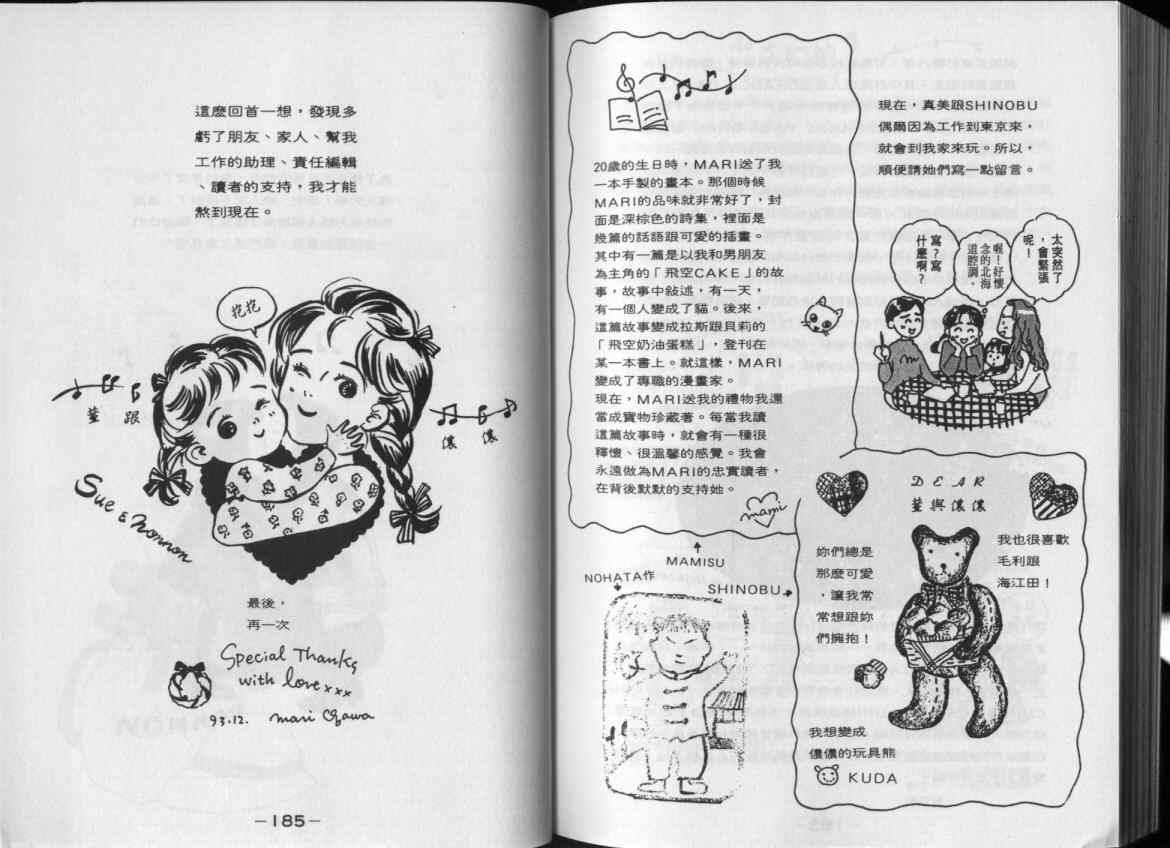 這麼回首一想，發現多
虧了朋友、家人、幫我
工作的助理、責任編輯
、讀者的支持，我才能
熬到現在。
抱抱
菫 跟
儂 儂
Sue & Nonnon
最後，
再一次
Special Thanks
with love xxx
93.12. Mari Ogawa
—185—
20歲的生日時，MARI送了我
一本手製的畫本。那個時候
MARI的品味就非常好了，封
面是深棕色的詩集，裡面是
幾篇的話語跟可愛的插畫。
其中有一篇是以我和男朋友
為主角的「飛空CAKE」的故
事，故事中敍述，有一天，
有一個人變成了貓。後來，
這篇故事變成拉斯跟貝莉的
「飛空奶油蛋糕」，登刊在
某一本書上。就這樣，MARI
變成了專職的漫畫家。
現在，MARI送我的禮物我還
當成寶物珍藏著。每當我讀
這篇故事時，就會有一種很
釋懷、很溫馨的感覺。我會
永遠做為MARI的忠實讀者，
在背後默默的支持她。
mami
MAMISU
NOHATA作
SHINOBU
現在，真美跟SHINOBU
偶爾因為工作到東京來，
就會到我家來玩。所以，
順便請她們寫一點留言。
太突然了
，會緊張
呢！
喔！好懷
念的北海
道腔調。
寫？寫
什麼啊？
DEAR
菫與儂儂
我也很喜歡
毛利跟
海江田！
妳們總是
那麼可愛
，讓我常
常想跟妳
們擁抱！
我想變成
儂儂的玩具熊
KUDA